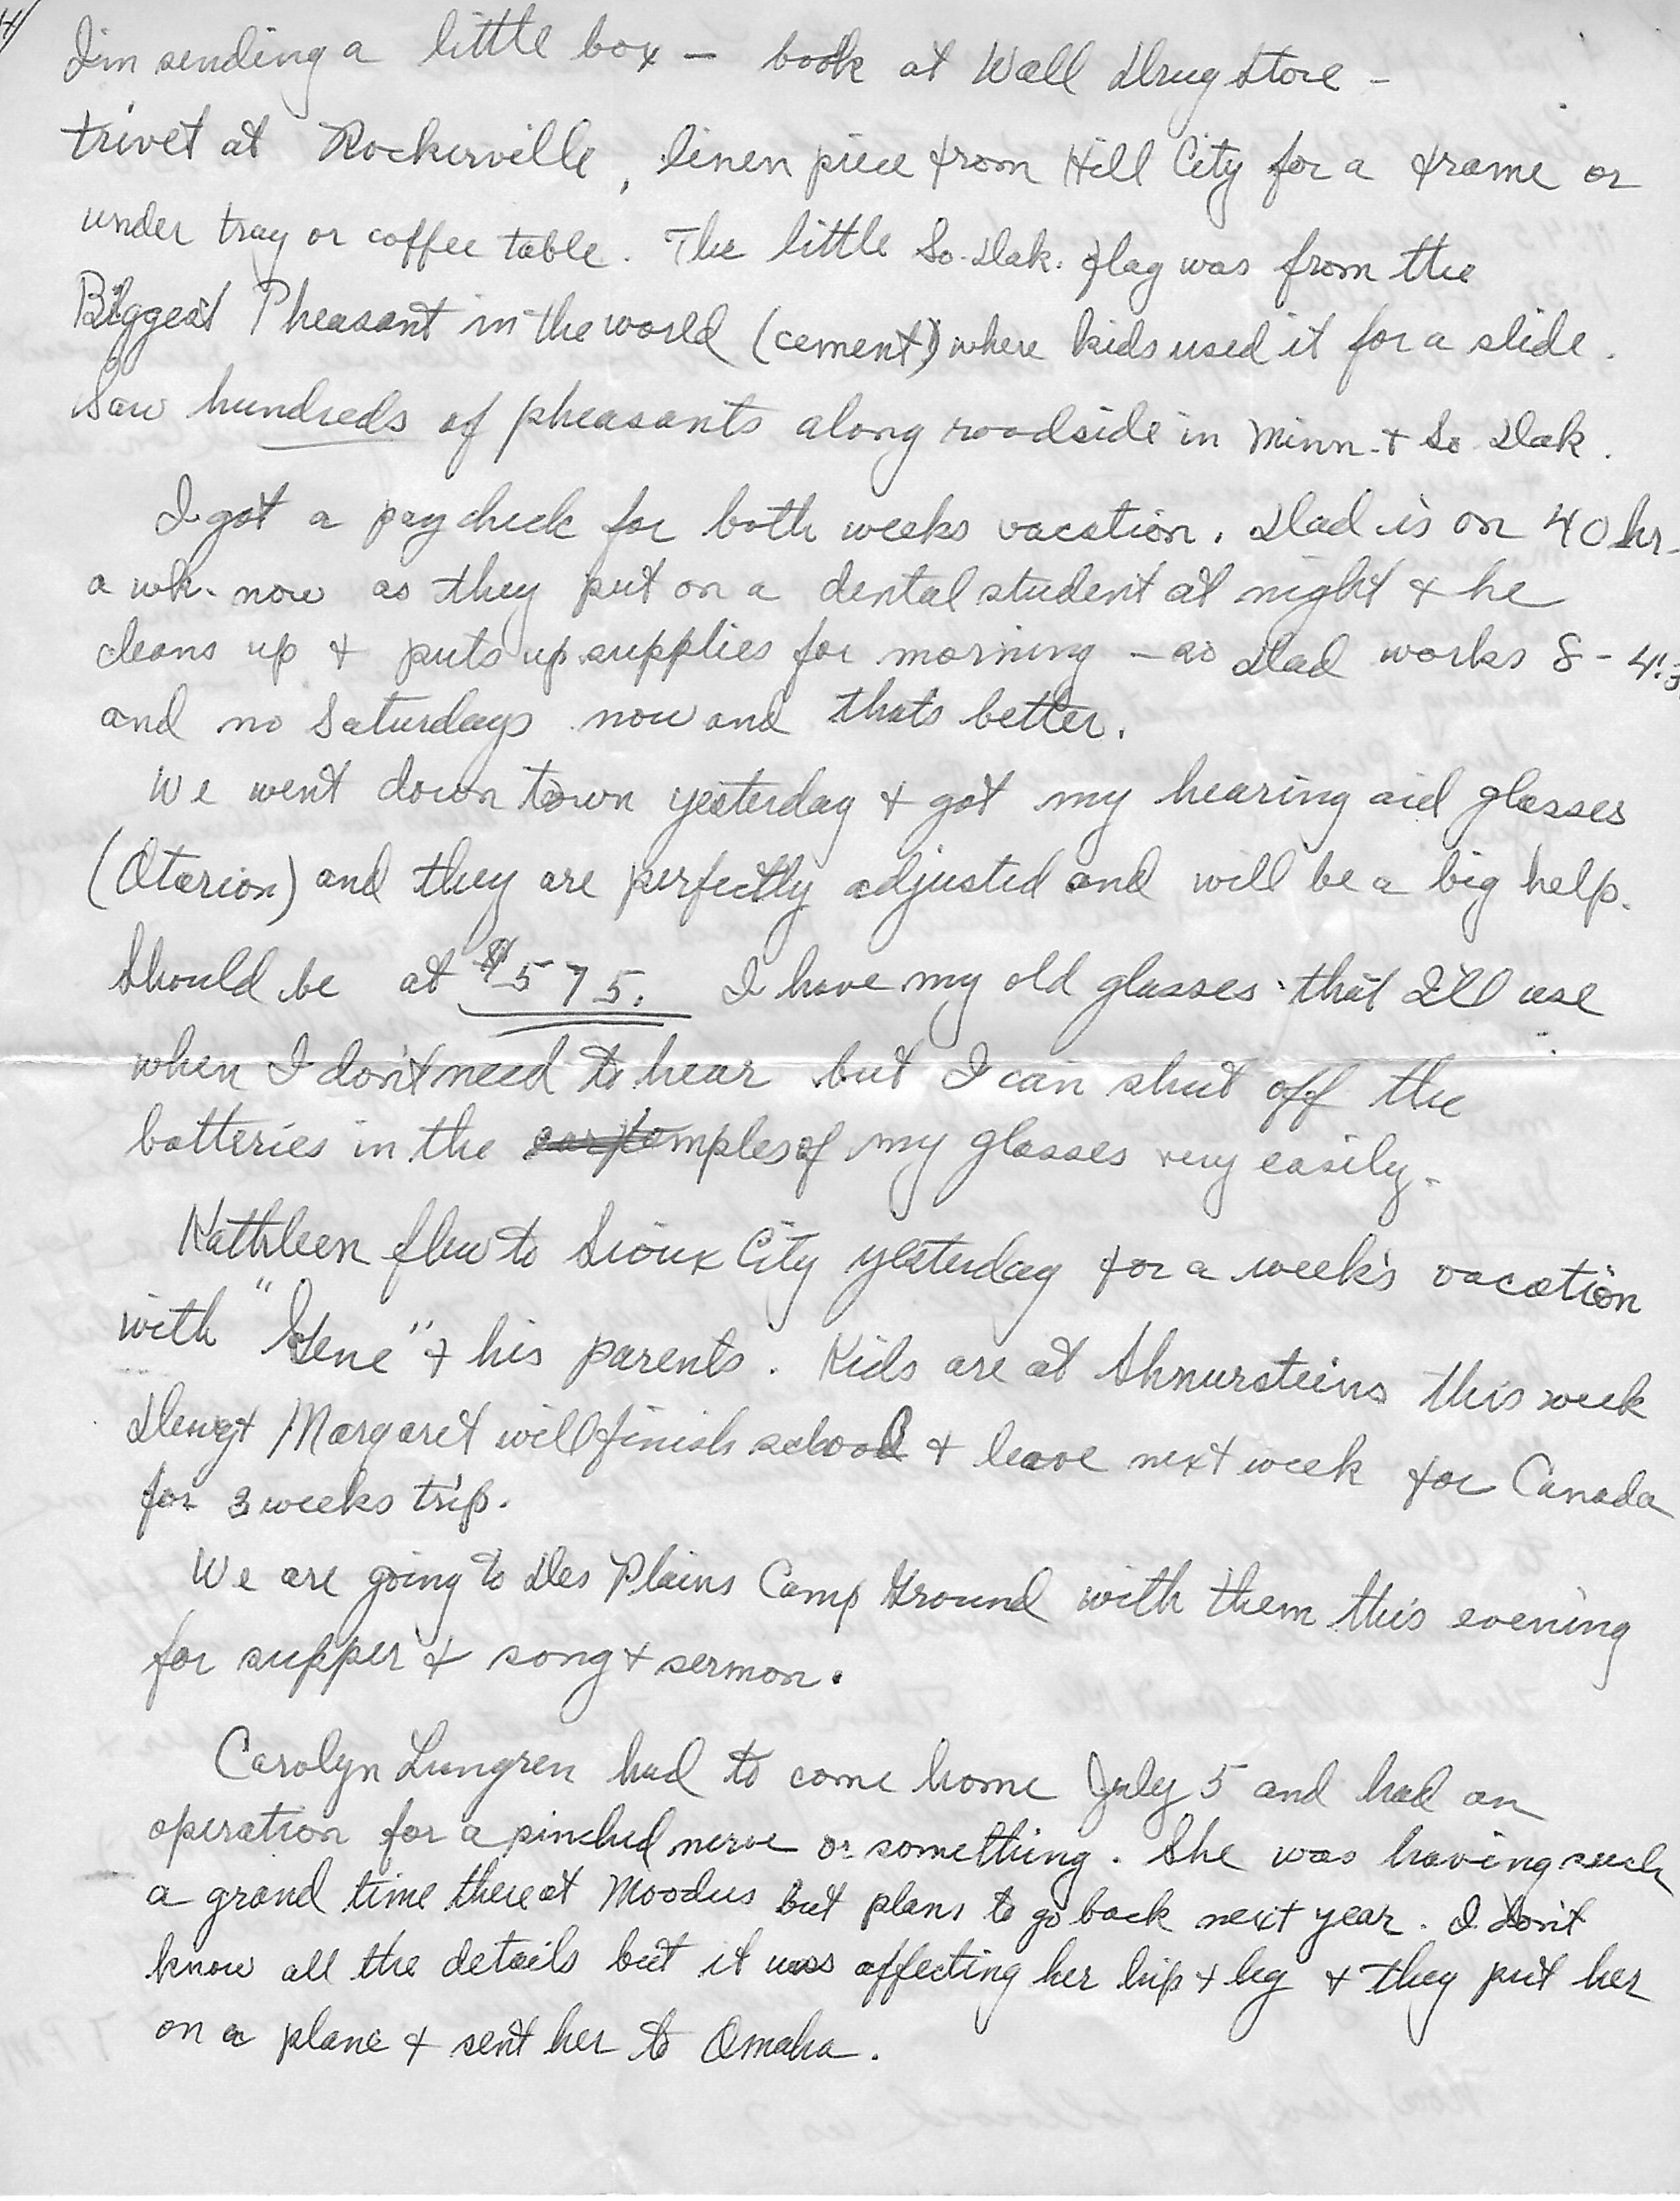 4/
I'm sending a little box – book at Wall Drug Store –
trivet at Rockerville, linen piece from Hill City for a frame or
under tray or coffee table. The little So. Dak. flag was from the
Biggest Pheasant in the world (cement) where kids used it for a slide.
Saw hundreds of pheasants along roadside in Minn. + So Dak.
I got a paycheck for both weeks vacation. Dad is on 40 hr.
a wk. now as they put on a dental student at night + he
cleans up + puts up supplies for morning – so Dad works 8 - 4:3
and no Saturdays now and thats better.
We went down town yesterday + got my hearing aid glasses
(Otarion) and they are perfectly adjusted and will be a big help.
Should be at $575. I have my old glasses that I'll use
when I don't need to hear but I can shut off the
batteries in the temples of my glasses very easily.
Kathleen flew to Sioux City yesterday for a week's vacation
with "Gene" + his parents. Kids are at Shnursteins this week
Dewey + Margaret will finish school + leave next week for Canada
for 3 weeks trip.
We are going to Des Plains Camp Ground with them this evening
for supper + song + sermon.
Carolyn Lungren had to come home July 5 and had an
operation for a pinched nerve or something. She was having such
a grand time there at Moodus but plans to go back next year. I don't
know all the details but it was affecting her hip + leg + they put her
on a plane + sent her to Omaha.